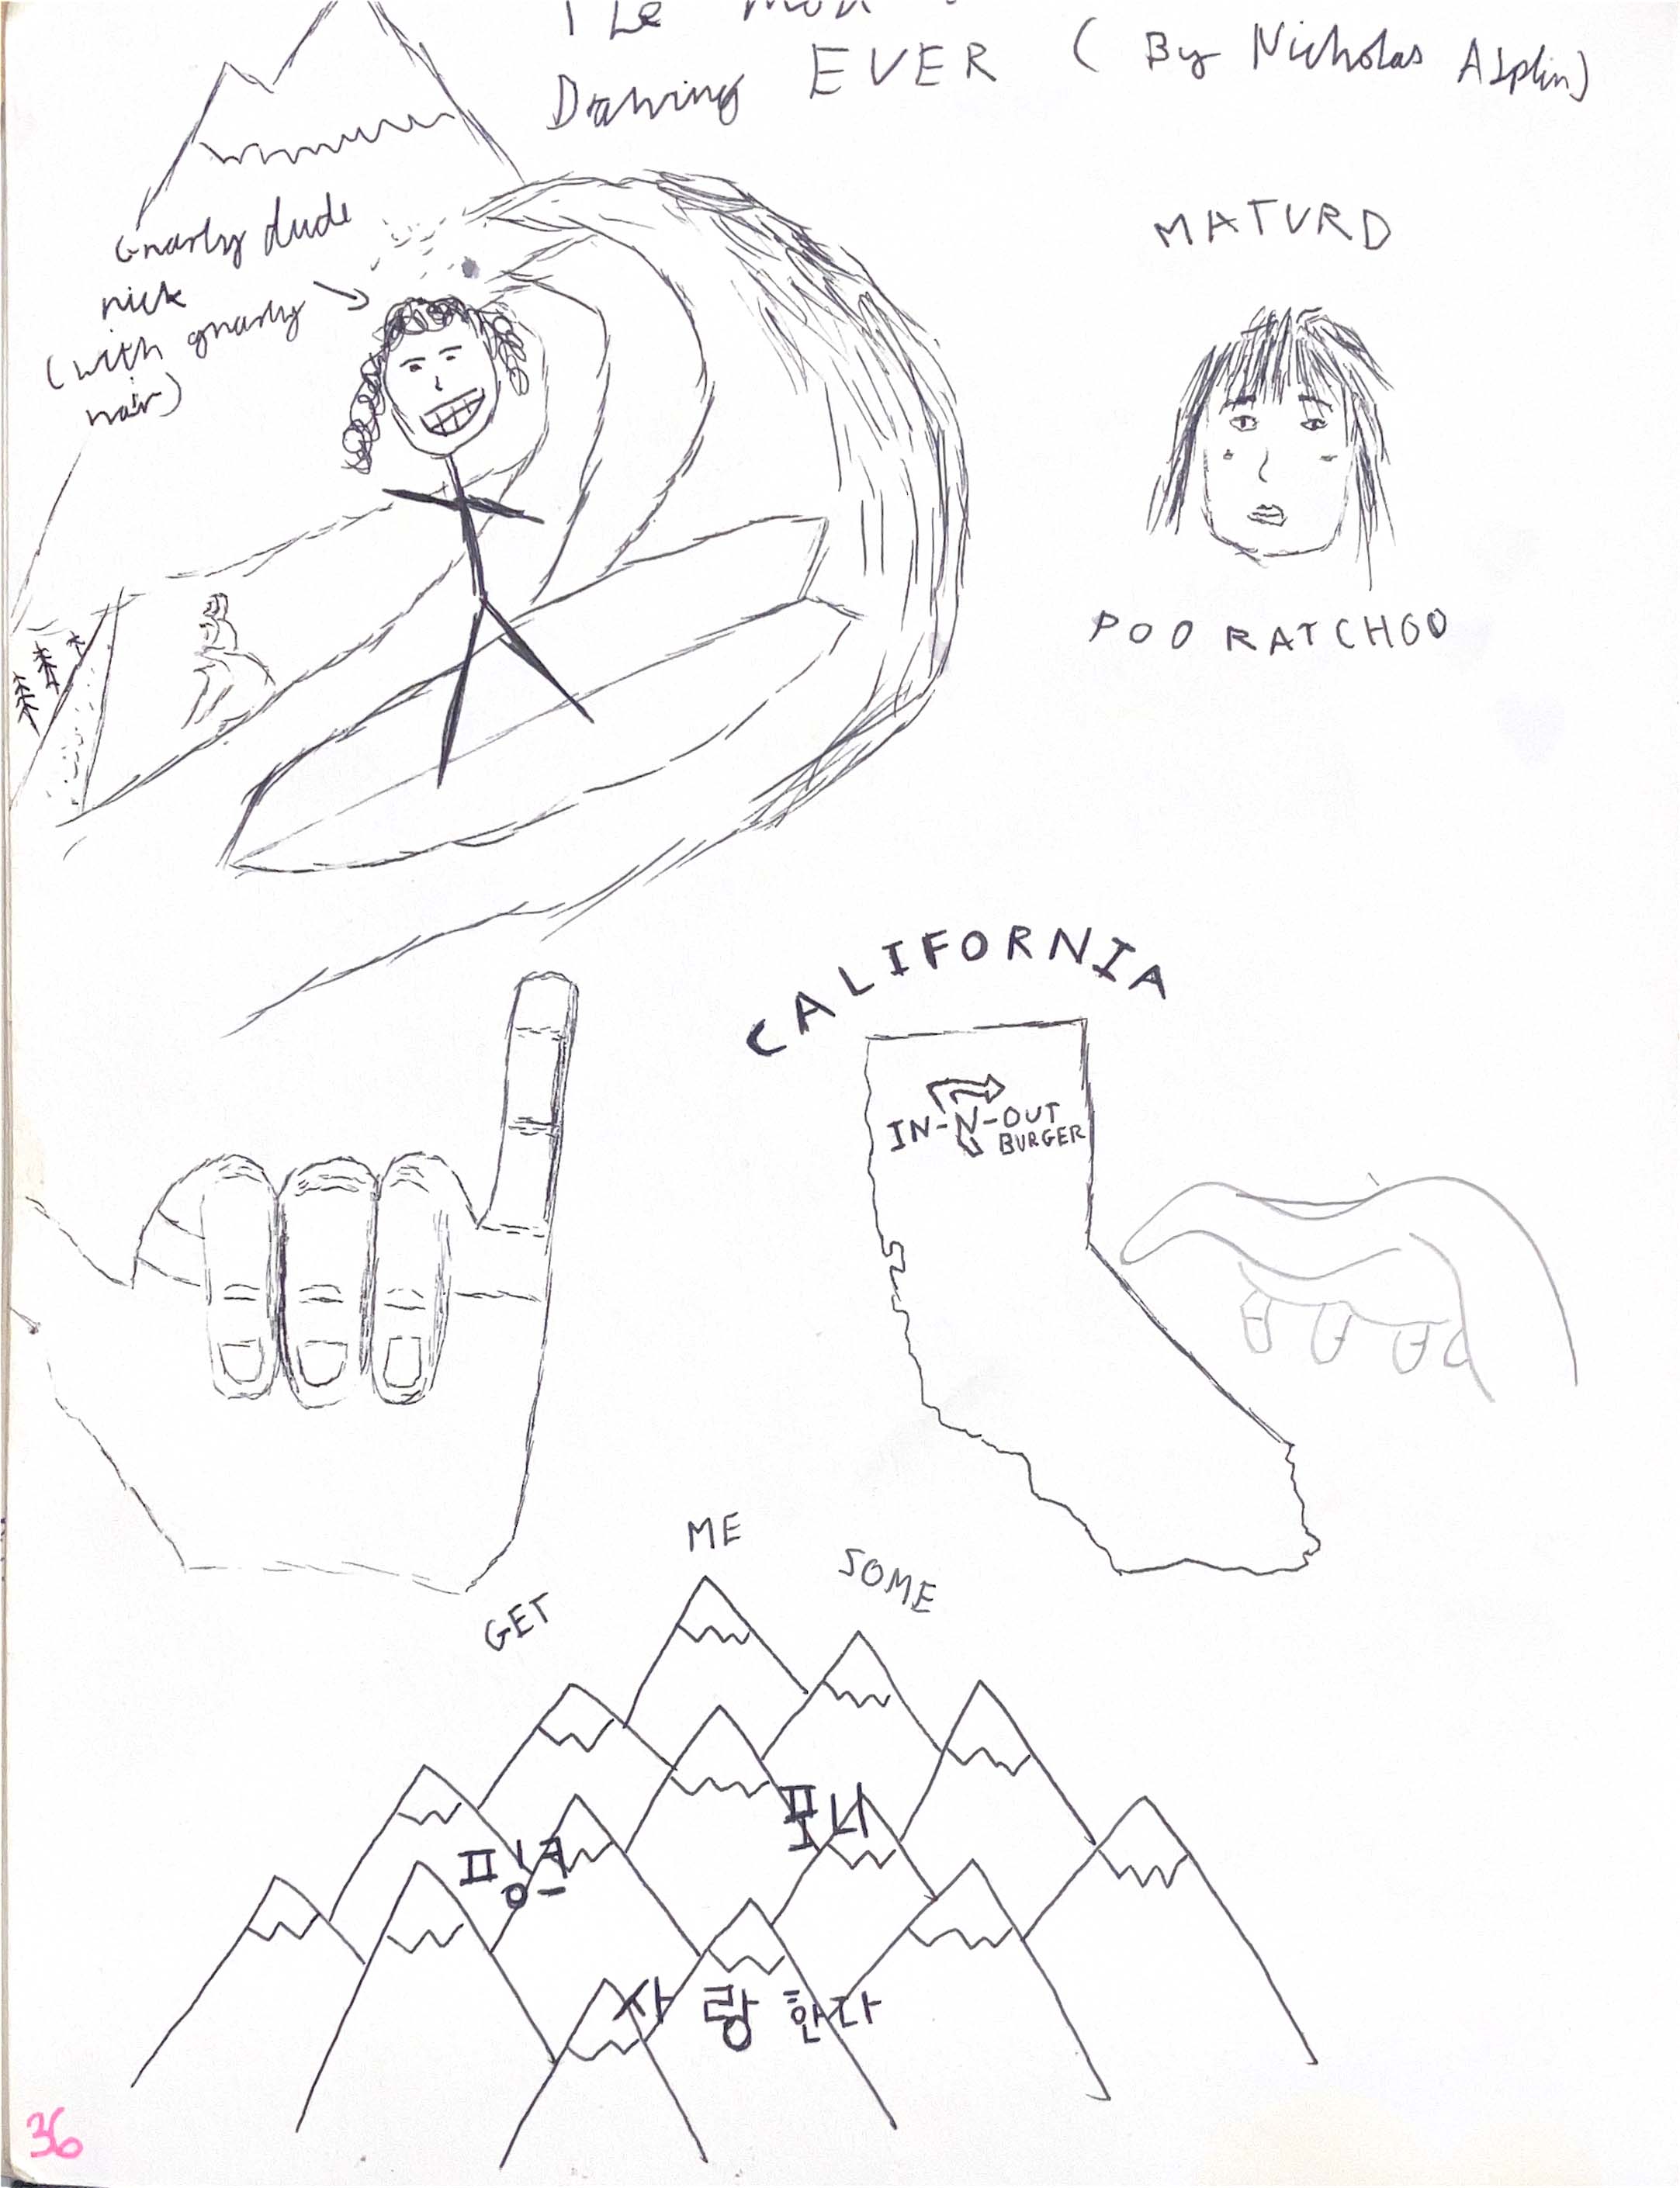 Drawing EVER (By Nicholas
Gnarly dude
nick
(with gnarly
hair)
MATURD
POO RATCHOO
CALIFORNIA
IN-N-OUT
BURGER
GET ME SOME
핑크 포니
사랑한다
36